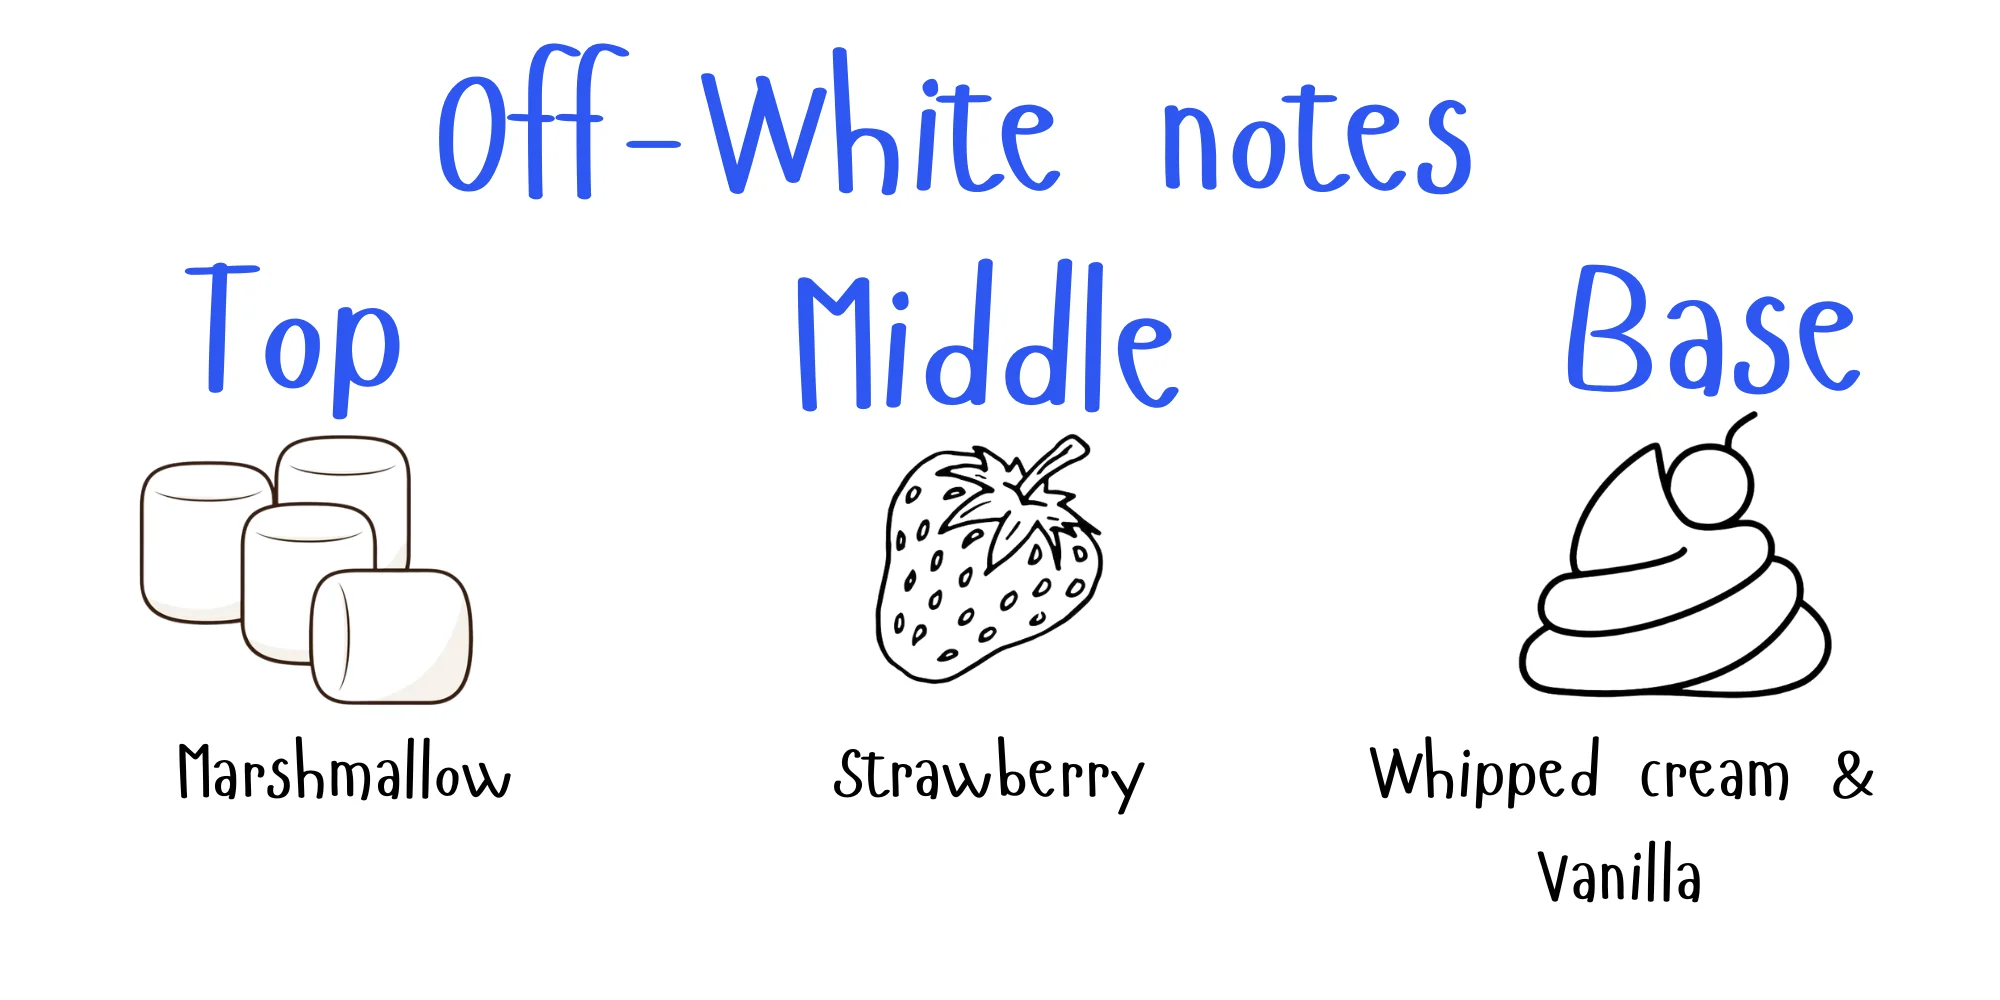 Off-White notes
Top
Middle
Base
Marshmallow
Strawberry
Whipped cream &
Vanilla